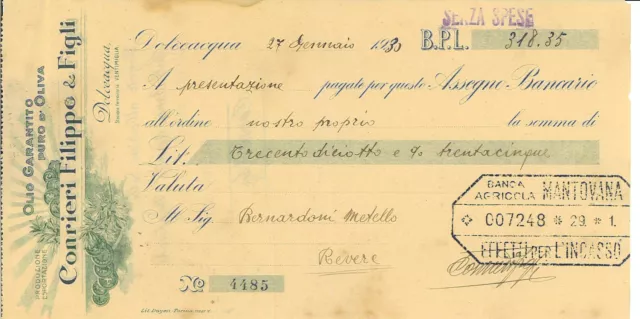 SENZA SPESE
Dolceacqua 27 Gennaio 1930 B.P.L. 318.35
A presentazione pagate per questo Assegno Bancario
all'ordine nostro proprio la somma di
Lit. Trecentodiciotto e % trentacinque
Valuta
Al Sig. Bernardoni Metello
Revere
No 4485
OLIO GARANTITO
PURO D'OLIVA
PRODUZIONE
ESPORTAZIONE
Conrieri Filippo & Figli
Dolceacqua
BANCA
AGRICOLA MANTOVANA
007248 * 29 * 1.
EFFETTI PER L'INCASSO